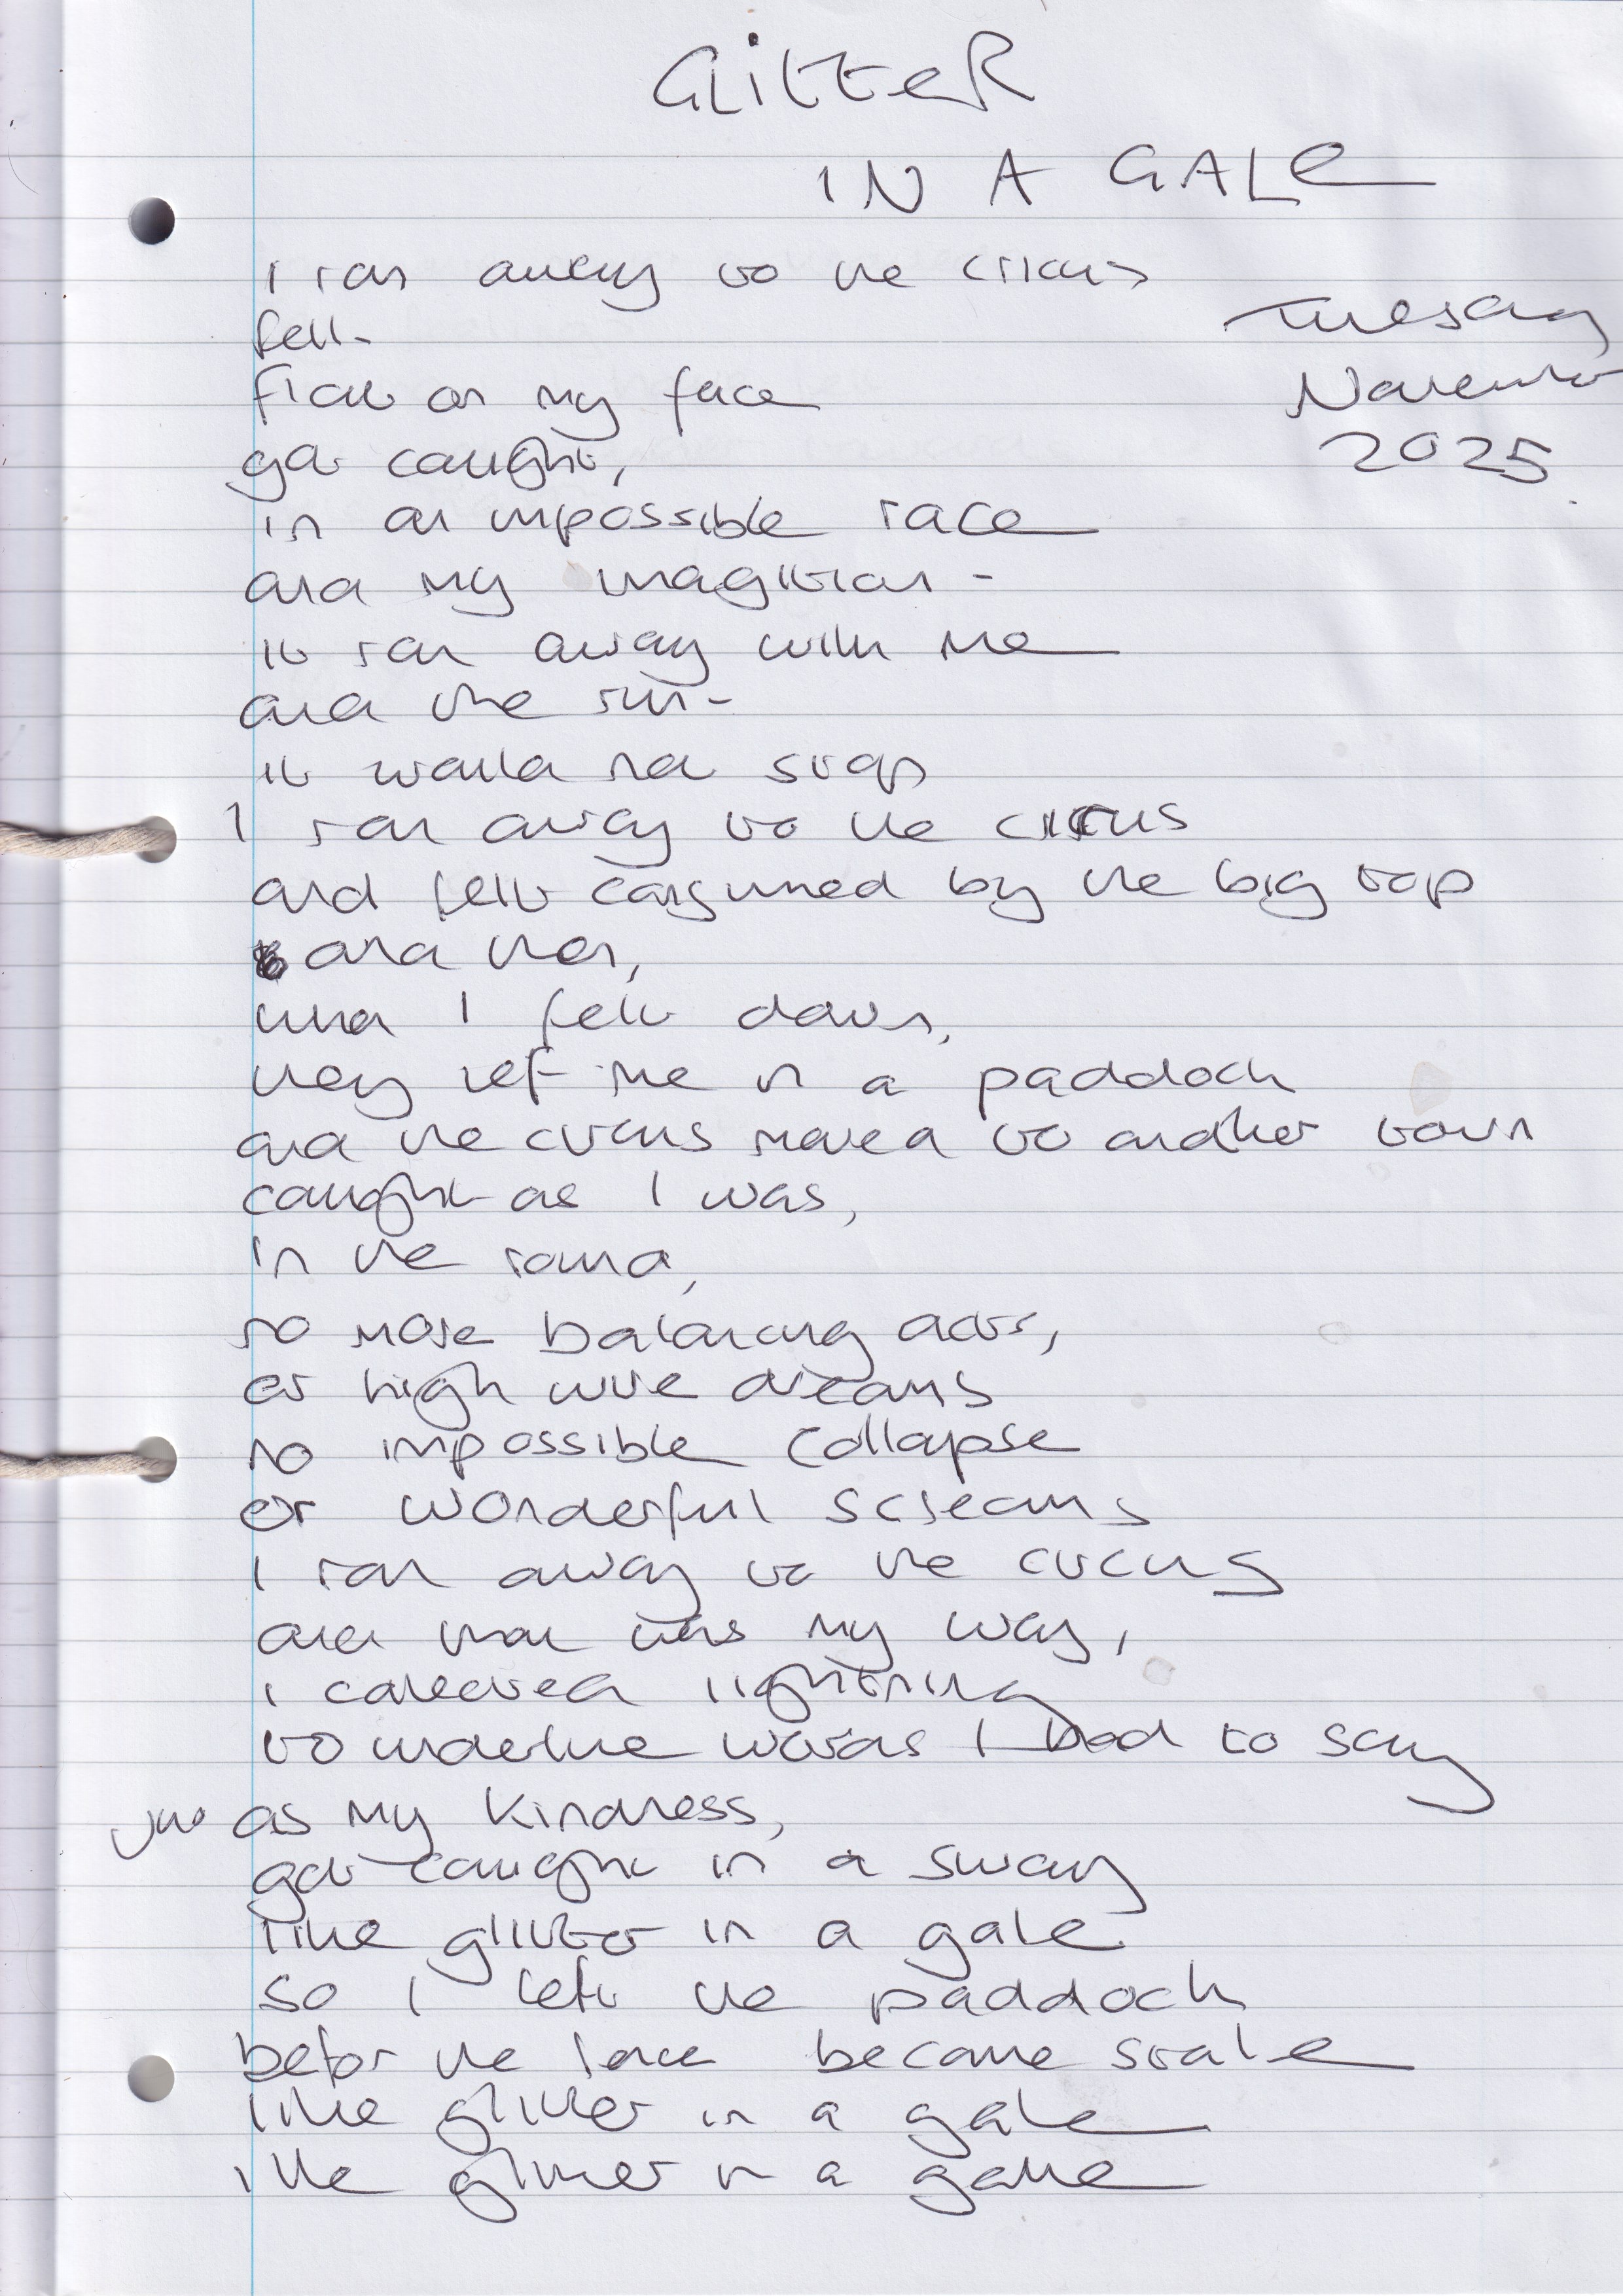 GLitteR
IN A GALe
I ran away to the circus
Tuesday
fell -
November
flat on my face
2025
got caught,
in an impossible race
and my imagination -
it ran away with me
and the run -
it would not stop
I ran away to the circus
and felt consumed by the big top
and then,
when I fell down,
they left me in a paddock
and the circus moved to another town
caught as I was,
in the round,
no more balancing acts,
or high wire dreams
no impossible collapse
or wonderful screams
I ran away to the circus
and that was my way,
I collected lightning
to underline words I had to say
just as my kindness,
got caught in a sway
like glitter in a gale
so I left the paddock
befor the became stale
like glitter in a gale
like glitter in a gale